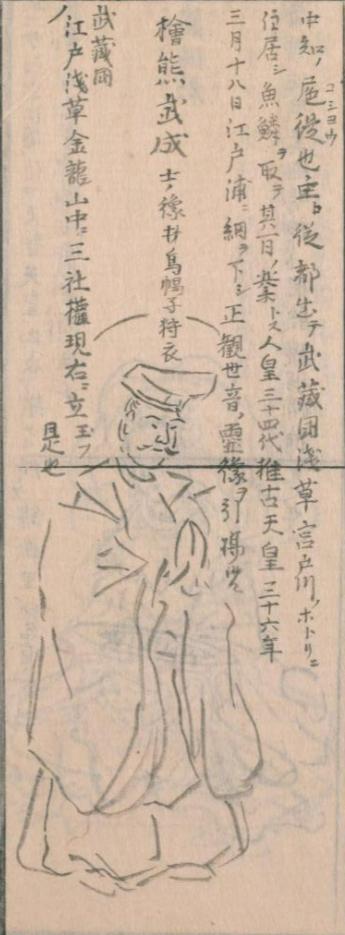 中知ノ扈従也主ト従都出テ武蔵国浅草宮戸川ノホトリニ
コシヨウ
住居シ魚鱗ヲ取ヲ其一日ノ楽トス人皇三十四代推古天皇三十六年
三月十八日江戸浦ニ網ヲ下シ正観世音ノ霊像ヲ引揚
檜熊武成士ノ像也烏帽子狩衣
武蔵国
江戸浅草金龍山中ニ三社権現右ニ立玉フ
是也